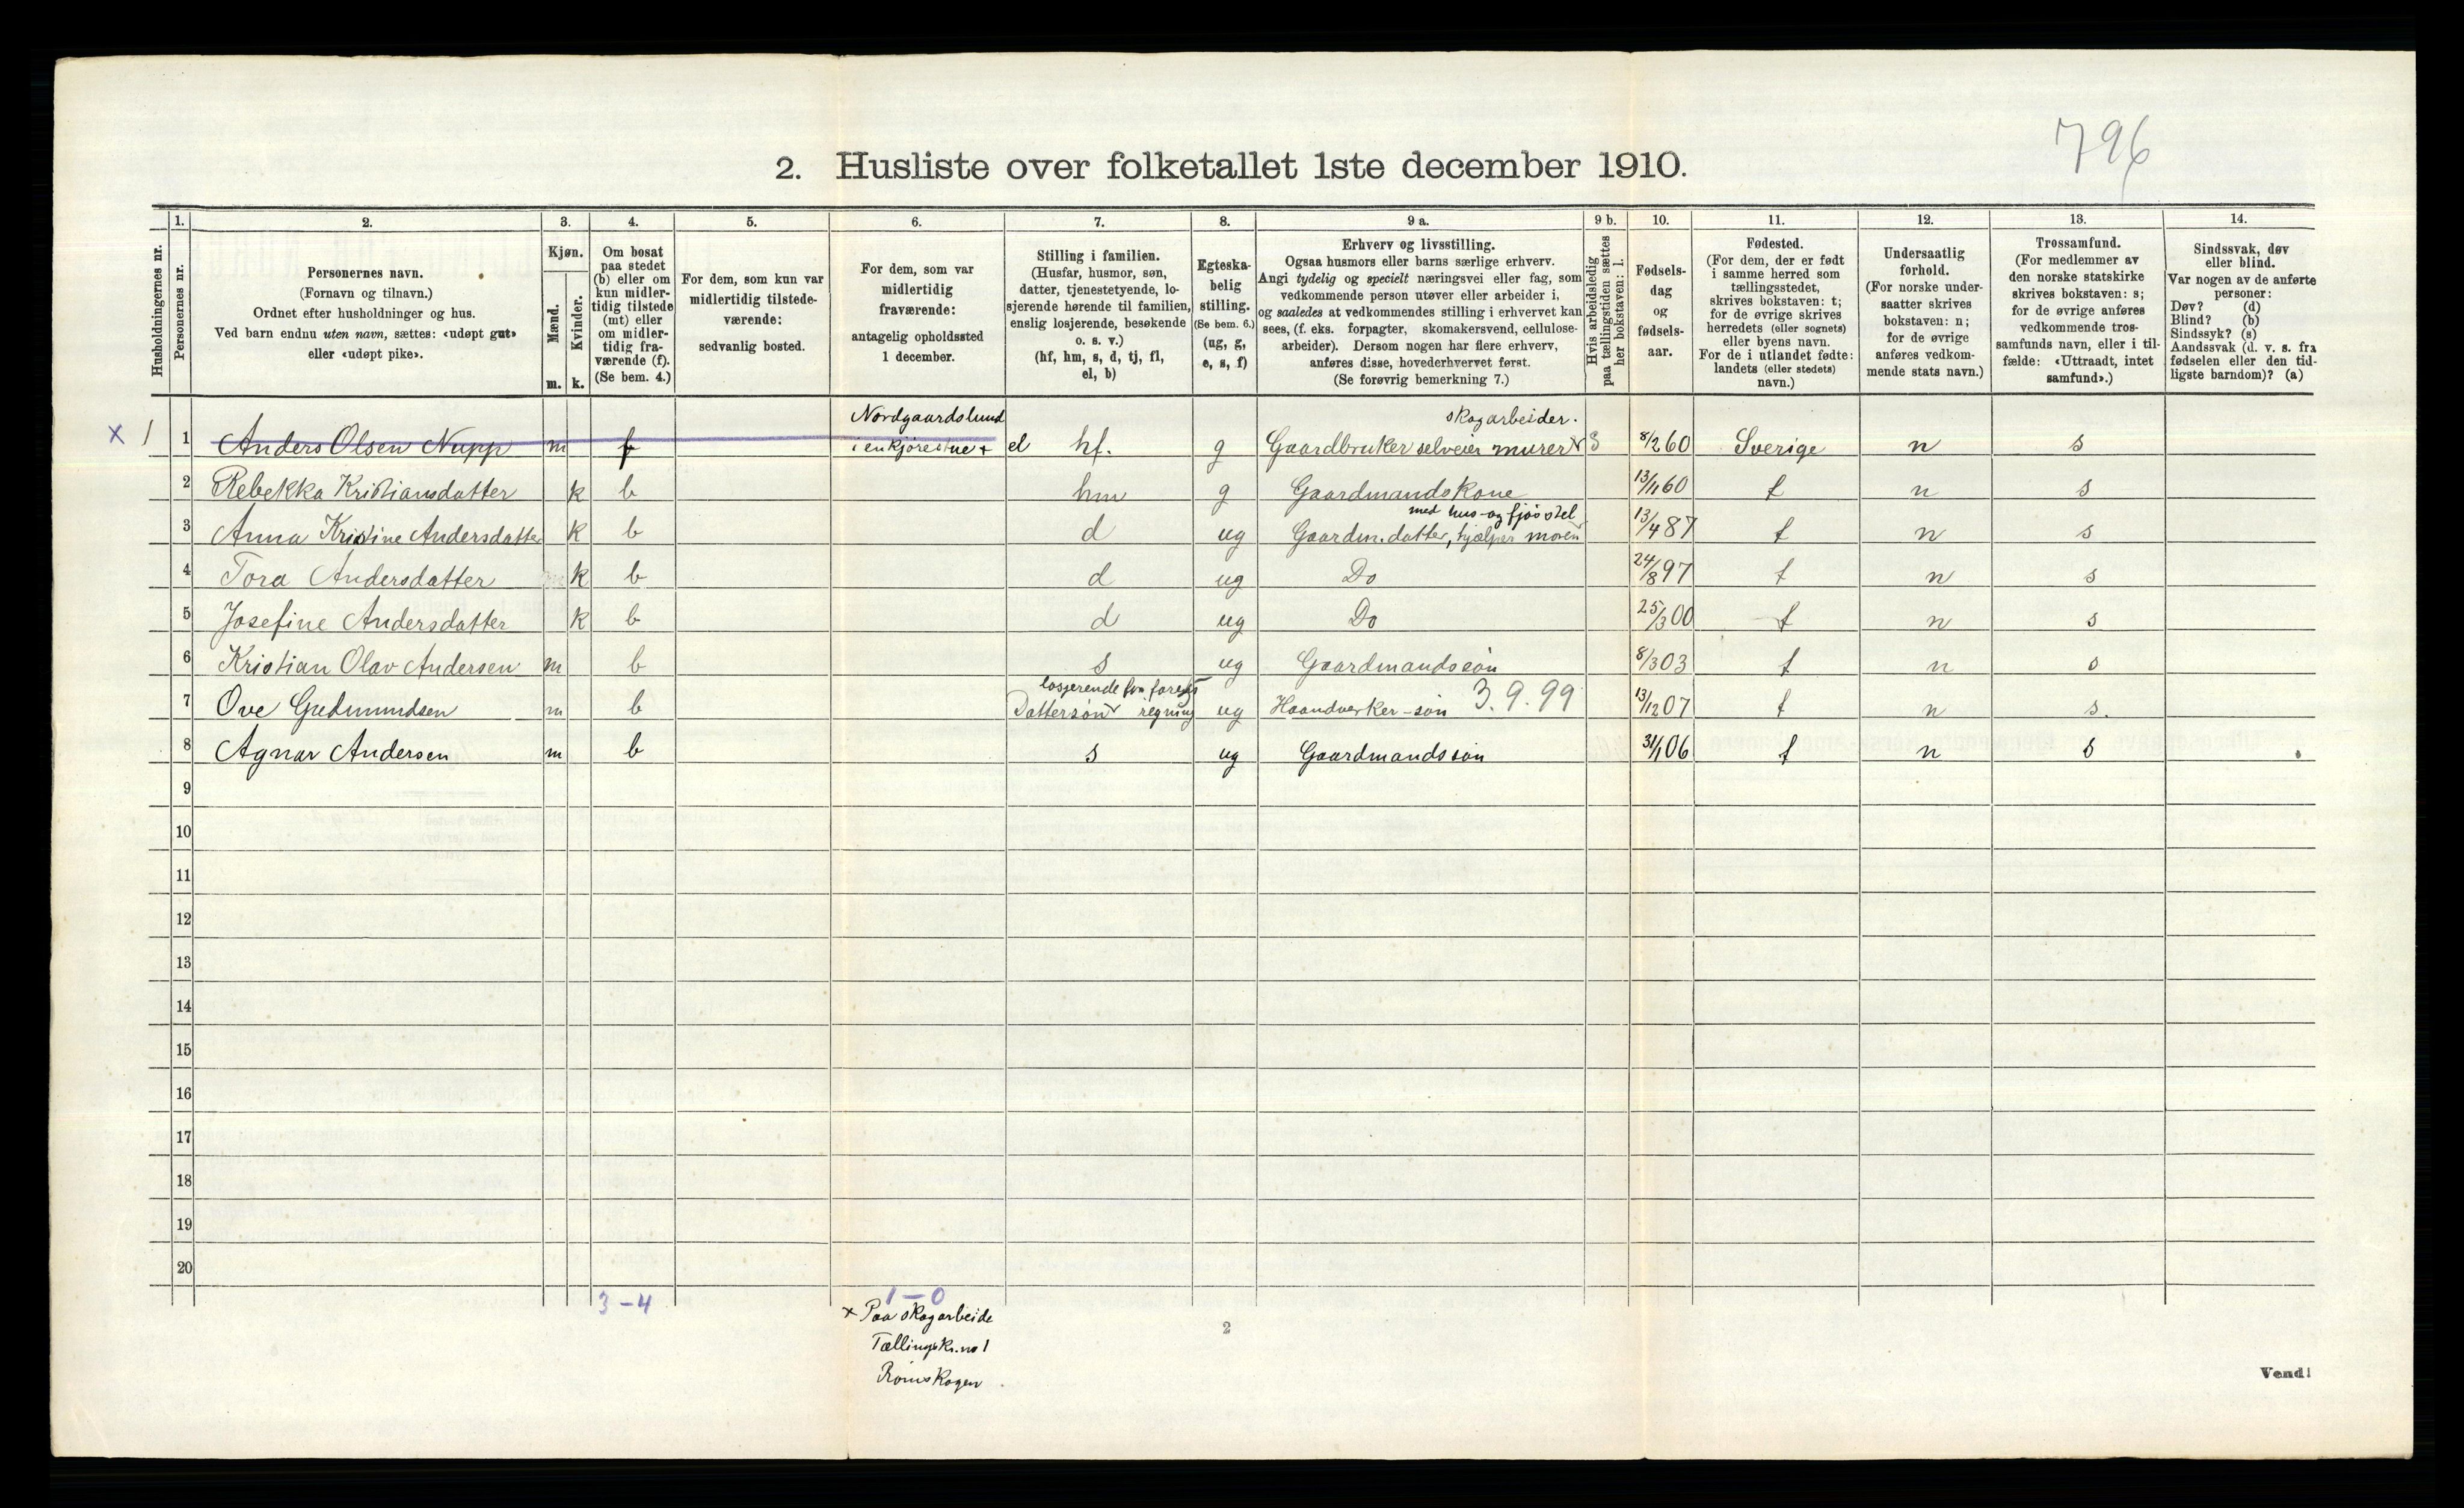 796
2. Husliste over folketallet 1ste december 1910.
1. 2. 3. 4. 5. 6. 7. 8. 9 a. 9 b. 10. 11. 12. 13. 14.
Husholdningernes nr.
Personernes nr.
Personernes navn.
(Fornavn og tilnavn.)
Ordnet efter husholdninger og hus.
Ved barn endnu uten navn, sættes: «udøpt gut»
eller «udøpt pike».
Kjøn.
Mænd.
Kvinder.
m. k.
Om bosat
paa stedet
(b) eller om
kun midler-
tidig tilstede
(mt) eller
om midler-
tidig fra-
værende (f).
(Se bem. 4.)
For dem, som kun var
midlertidig tilstede-
værende:
sedvanlig bosted.
For dem, som var
midlertidig
fraværende:
antagelig opholdssted
1 december.
Stilling i familien.
(Husfar, husmor, søn,
datter, tjenestetyende, lo-
sjerende hørende til familien,
enslig losjerende, besøkende
o. s. v.)
(hf, hm, s, d, tj, fl,
el, b)
Egteska-
belig
stilling.
(Se bem. 6.)
(ug, g,
e, s, f)
Erhverv og livsstilling.
Ogsaa husmors eller barns særlige erhverv.
Angi tydelig og specielt næringsvei eller fag, som
vedkommende person utøver eller arbeider i,
og saaledes at vedkommendes stilling i erhvervet kan
sees, (f. eks. forpagter, skomakersvend, cellulose-
arbeider). Dersom nogen har flere erhverv,
anføres disse, hovederhvervet først.
(Se forøvrig bemerkning 7.)
Hvis arbeidsledig
paa tællingstiden sættes
her bokstaven: l.
Fødsels-
dag
og
fødsels-
aar.
Fødested.
(For dem, der er født
i samme herred som
tællingsstedet,
skrives bokstaven: t;
for de øvrige skrives
herredets (eller sognets)
eller byens navn.
For de i utlandet fødte:
landets (eller stedets)
navn.)
Undersaatlig
forhold.
(For norske under-
saatter skrives
bokstaven: n;
for de øvrige
anføres vedkom-
mende stats navn.)
Trossamfund.
(For medlemmer av
den norske statskirke
skrives bokstaven: s;
for de øvrige anføres
vedkommende tros-
samfunds navn, eller i til-
fælde: «Uttraadt, intet
samfund».)
Sindssvak, døv
eller blind.
Var nogen av de anførte
personer:
Døv? (d)
Blind? (b)
Sindssyk? (s)
Aandssvak (d. v. s. fra
fødselen eller den tid-
ligste barndom)? (a)
Nordgaardslund skogarbeider.
x 1 1 Anders Olsen Nupp m f i en kjørestue + el hf. g Gaardbruker selveier murer 3 8/2 60 Sverige n s
2 Rebekka Kristiansdatter k b hm g Gaardmandskone 13/11 60 t n s
med hus-og fjøsstel
3 Anna Kristine Andersdatter k b d ug Gaardm. datter, hjælper moren 13/4 87 t n s
4 Tora Andersdatter k b d ug Do 24/8 97 t n s
5 Josefine Andersdatter k b d ug Do 25/3 00 t n s
6 Kristian Olav Andersen m b s ug Gaardmandssøn 8/3 03 t n s
losjerende for
7 Ove Gudmundsen m b Dattersøn regning ug Haandverker-søn 3.9.99 13/12 07 t n s.
8 Agnar Andersen m b s ug Gaardmandssøn 31/1 06 t n s
9
10
11
12
13
14
15
16
17
18
19
20
3-4 1-0
x Paa skogarbeide
Tællingskr. no 1
Rømskogen
2
Vend!